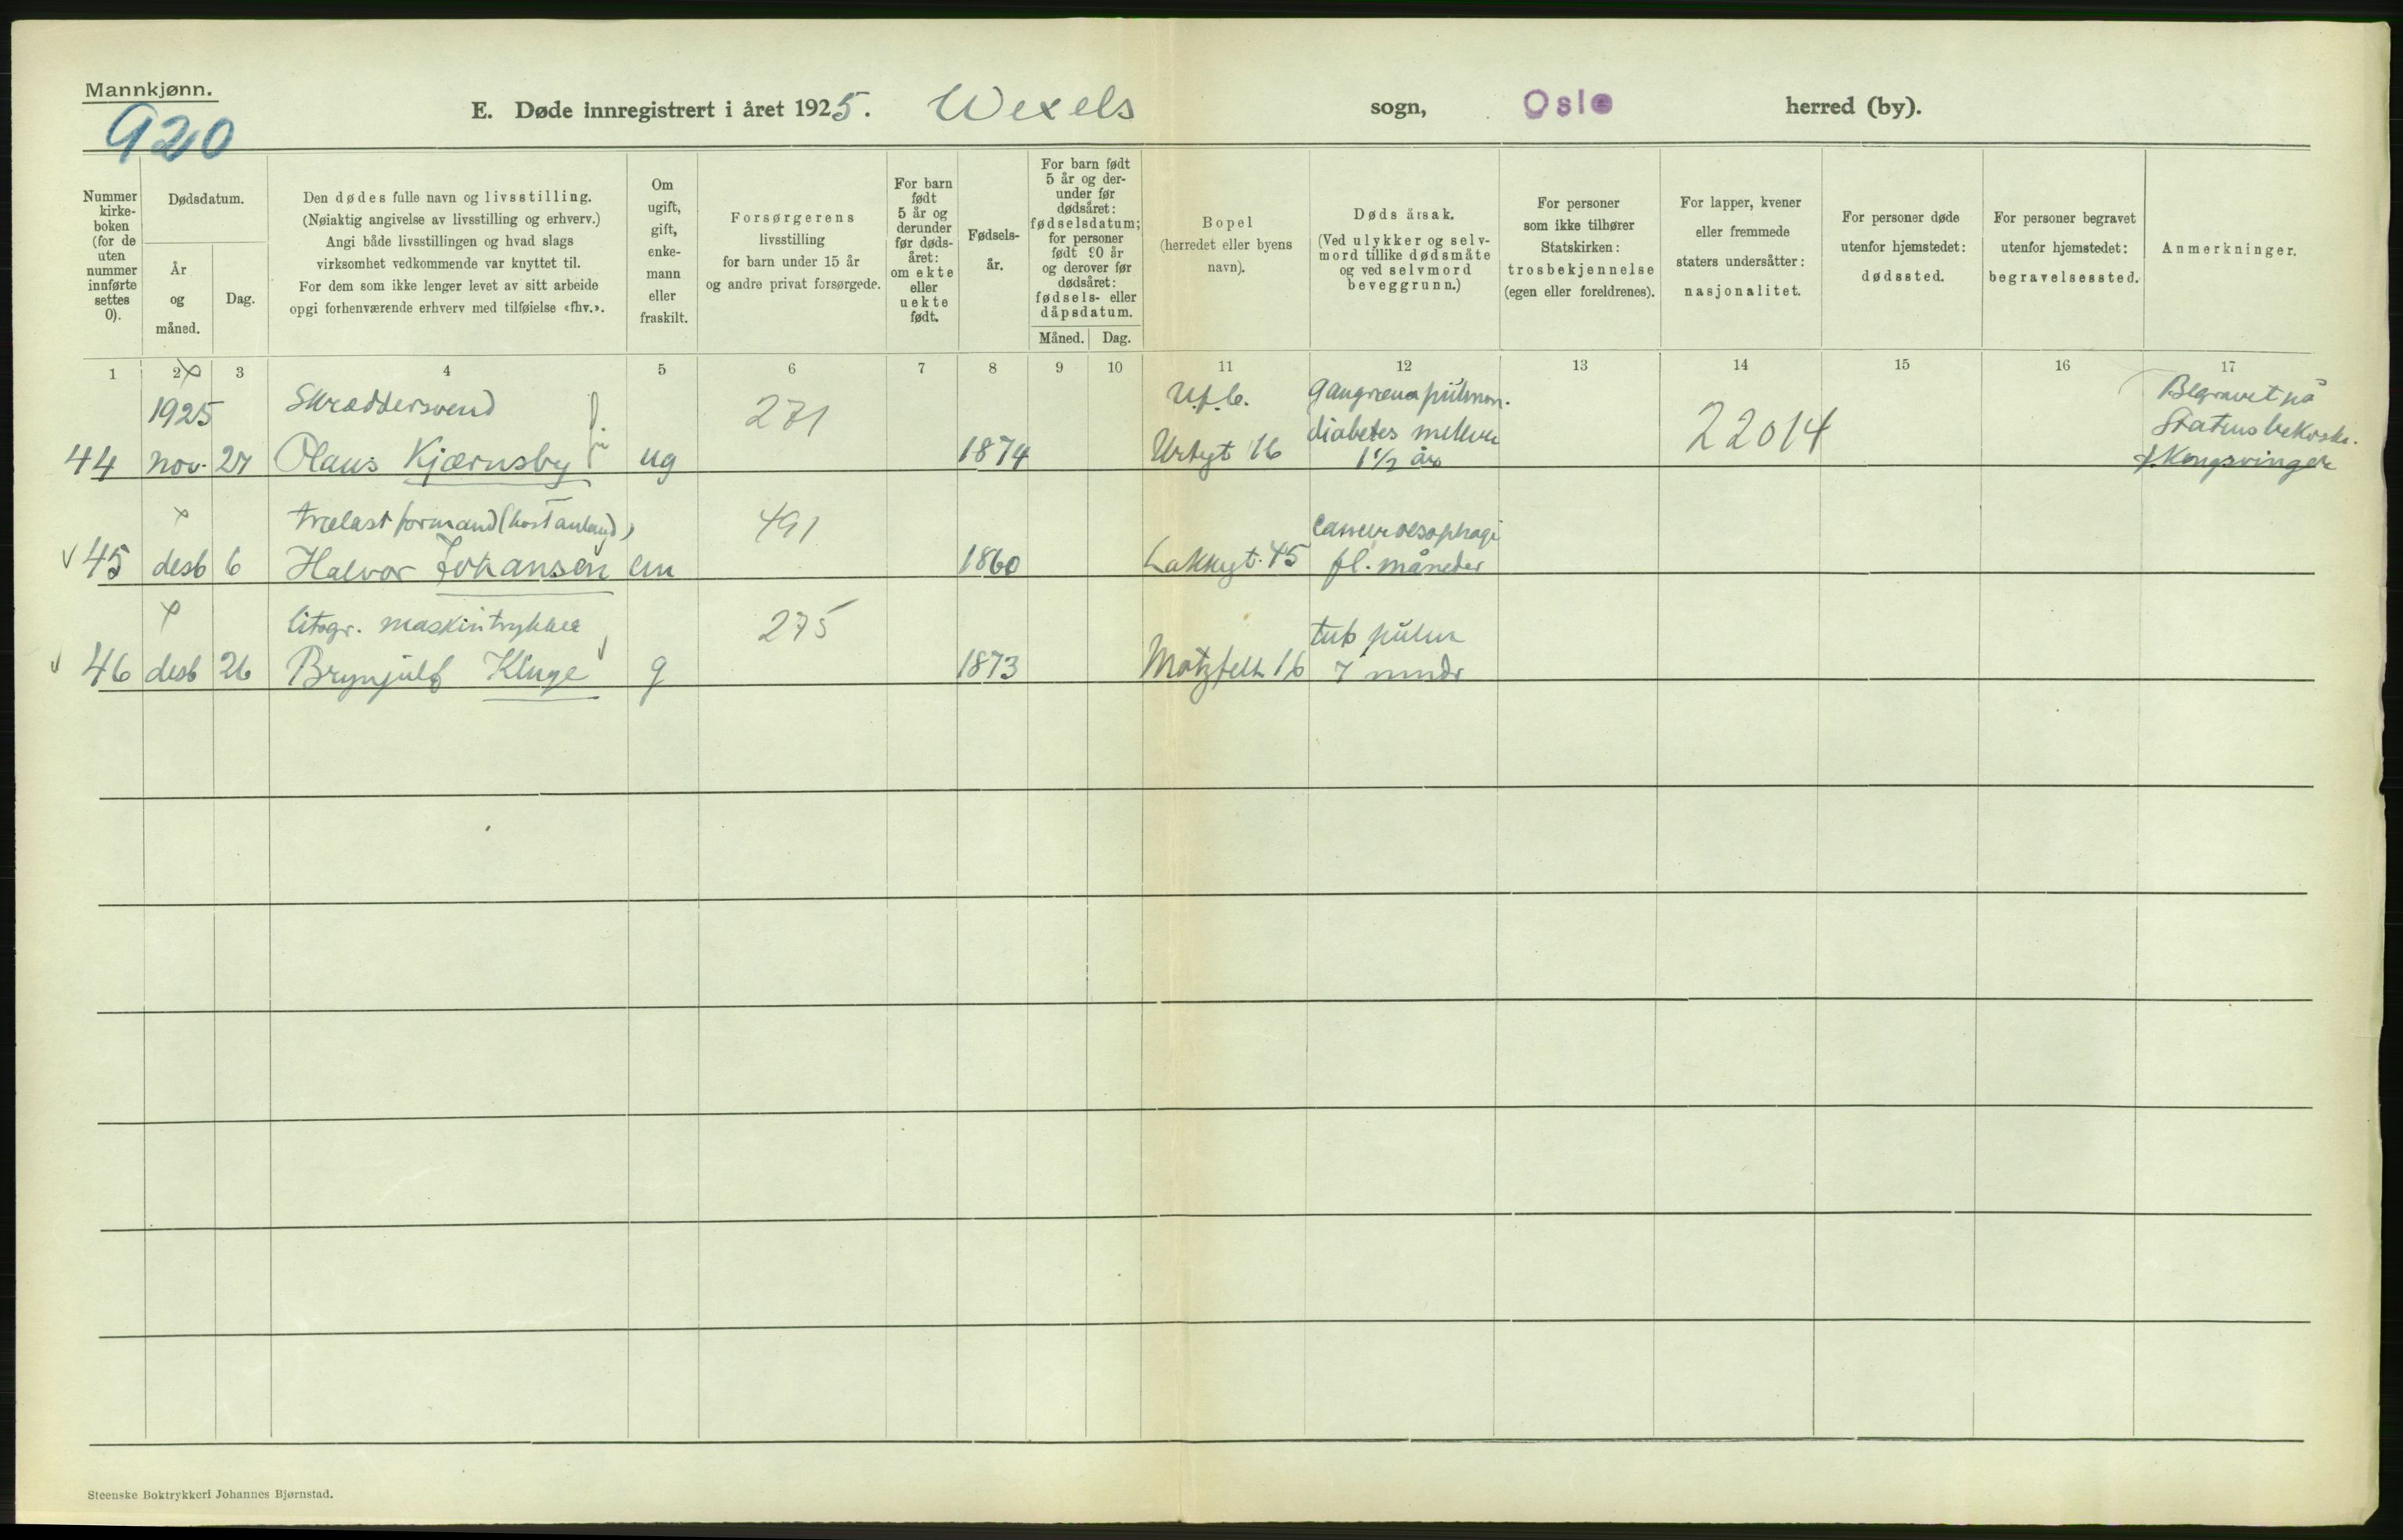 Mannkjønn.
920
E. Døde innregistrert i året 1925. Wexels sogn, Oslo herred (by).
Nummer
kirke-
boken
(for de
uten
nummer
innførte
settes
0).
Dødsdatum.
År
og
måned.
Dag.
Den dødes fulle navn og livsstilling.
(Nøiaktig angivelse av livsstilling og erhverv.)
Angi både livsstillingen og hvad slags
virksomhet vedkommende var knyttet til.
For dem som ikke lenger levet av sitt arbeide
opgi forhenværende erhverv med tilføielse «fhv.».
Om
ugift,
gift,
enke-
mann
eller
fraskilt.
Forsørgerens
livsstilling
for barn under 15 år
og andre privat forsørgede.
For barn
født
5 år og
derunder
før døds-
året:
om ekte
eller
uekte
født.
Fødsels-
år.
For barn født
5 år og der-
under før
dødsåret:
fødselsdatum;
for personer
født 90 år
og derover før
dødsåret:
fødsels- eller
dåpsdatum.
Måned. Dag.
Bopel
(herredet eller byens
navn).
Dødsårsak.
(Ved ulykker og selv-
mord tillike dødsmåte
og ved selvmord
beveggrunn.)
For personer
som ikke tilhører
Statskirken:
trosbekjennelse
(egen eller foreldrenes).
For lapper, kvener
eller fremmede
staters undersåtter:
nasjonalitet.
For personer døde
utenfor hjemstedet:
dødssted.
For personer begravet
utenfor hjemstedet:
begravelsessted.
Anmerkninger.
1 2 3 4 5 6 7 8 9 10 11 12 13 14 15 16 17
1925 Skræddersvend 271 U.f.b. gangræna pulmon. 22014 Begravet på
diabetes Statens bekostn.
44 nov. 27 Olaus Kjærnsby ug 1874 Urtegt 16 1 1/2 år Kongsvinger
trælastformand 491 cancer oesophagi
45 desb 6 Halvor Johansen em 1860 Lakkegt. 45 fl. måneder
litogr. maskintrykker 275 tub pulm
46 desb 26 Brynjulf Kluge g 1873 Motzfelt 16 7 mndr
Steenske Boktrykkeri Johannes Bjørnstad.